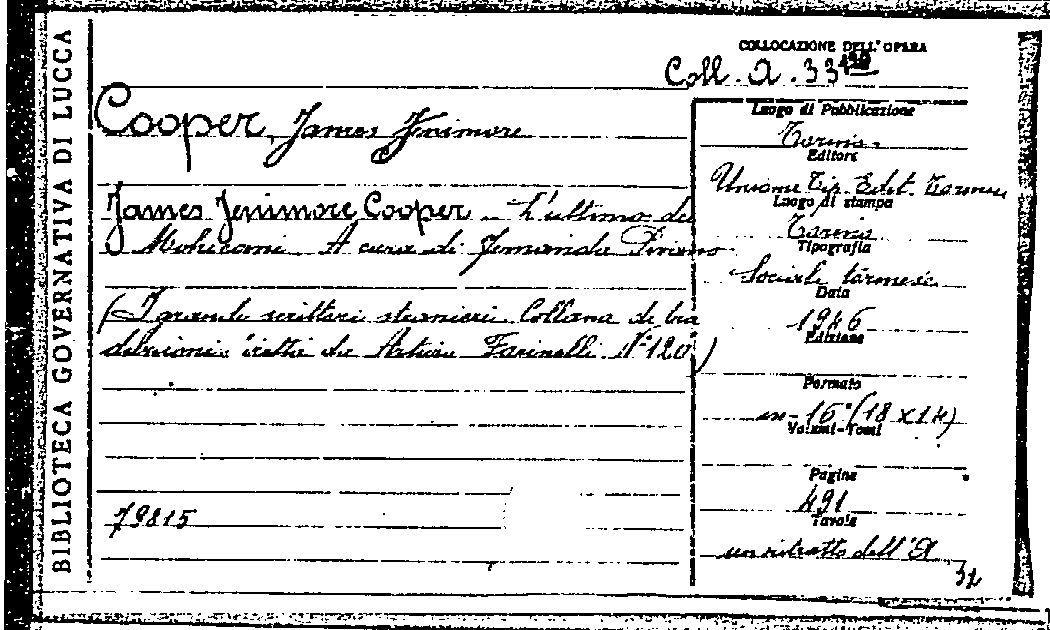 BIBLIOTECA GOVERNATIVA DI LUCCA
COLLOCAZIONE DELL'OPERA
Coll. A. 33
Cooper, James Fenimore
James Fenimore Cooper - L'ultimo dei
Mohicani A cura di Fernanda Pivano
(I grandi scrittori stranieri. Collana di tra
duzioni diretta da Arturo Farinelli. N° 120)
79815
Luogo di Pubblicazione
Torino
Editore
Unione Tip. Edit. Torinese
Luogo di stampa
Torino
Tipografia
Sociale torinese
Data
1946
Edizione
Formato
in-16° (18 x 14)
Volumi-Tomi
Pagine
491
Tavole
un ritratto dell'A